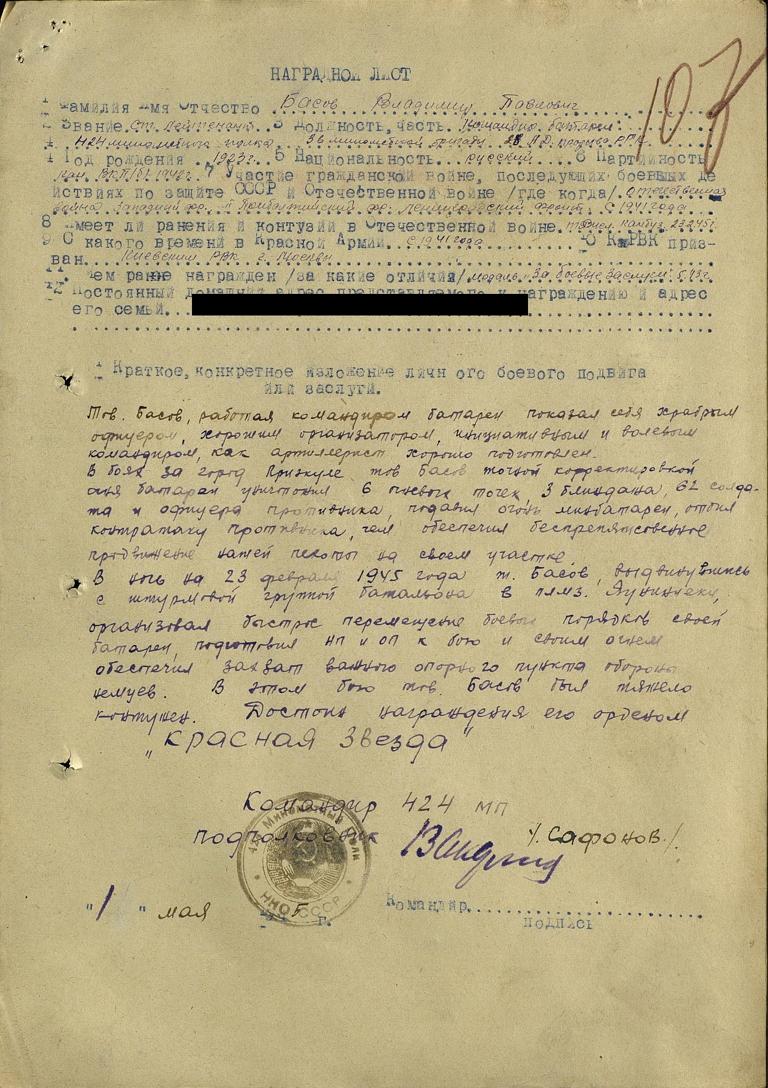 НАГРАДНОЙ ЛИСТ
103
1 Фамилия Имя Отчество Басов Владимир Павлович
2 Звание Ст. лейтенант 3 Должность, часть Командир батареи
424 минометного полка 36 минометной бригады 28 А.Д. прорыва РГК
4 Год рождения 1923г. 5 Национальность русский 6 Партийность
ВКП/б/ 7 Участие гражданской войне, последующих боевых де
йствиях по защите СССР и Отечественной войне /где когда/ Отечественная
война Западный фр. Прибалтийский фр. Ленинградский фронт с 1941 года
8 Имеет ли ранения и контузии в Отечественной войне. 23.2.45г.
9 С какого времени в Красной Армии с 1941 года 10 Ким РВК приз-
ван. Киевским РВК г. Москвы
11 Чем ранее награжден /за какие отличия/ медаль "За боевые заслуги"
12 Постоянный домашний адрес представляемого к награждению и адрес
его семьи.
1 Краткое, конкретное изложение личн ого боевого подвига
или заслуги.
Тов. Басов, работая командиром батареи показал себя храбрым
офицером, хорошим организатором, инициативным и волевым
командиром, как артиллерист хорошо подготовлен.
В боях за город Приэкуле тов Басов точной корректировкой
огня батареи уничтожил 6 огневых точек, 3 блиндажа, 62 солда-
та и офицера противника, подавил огонь минбатареи, отбил
контратаку противника, чем обеспечил беспрепятственное
продвижение нашей пехоты на своем участке.
В ночь на 23 февраля 1945 года т. Басов, выдвинувшись
с штурмовой группой батальона в
организовал быстрое перемещение боевых порядков своей
батареи, подготовил НП и ОП к бою и своим огнем
обеспечил захват важного опорного пункта обороны
немцев. В этом бою тов. Басов был тяжело
контужен. Достоин награждения его орденом
"Красная Звезда"
Командир 424 мп
подполковник /. Сафонов./
Минометный полк
НКО СССР
"1" мая 5 г.
Командир
подпись